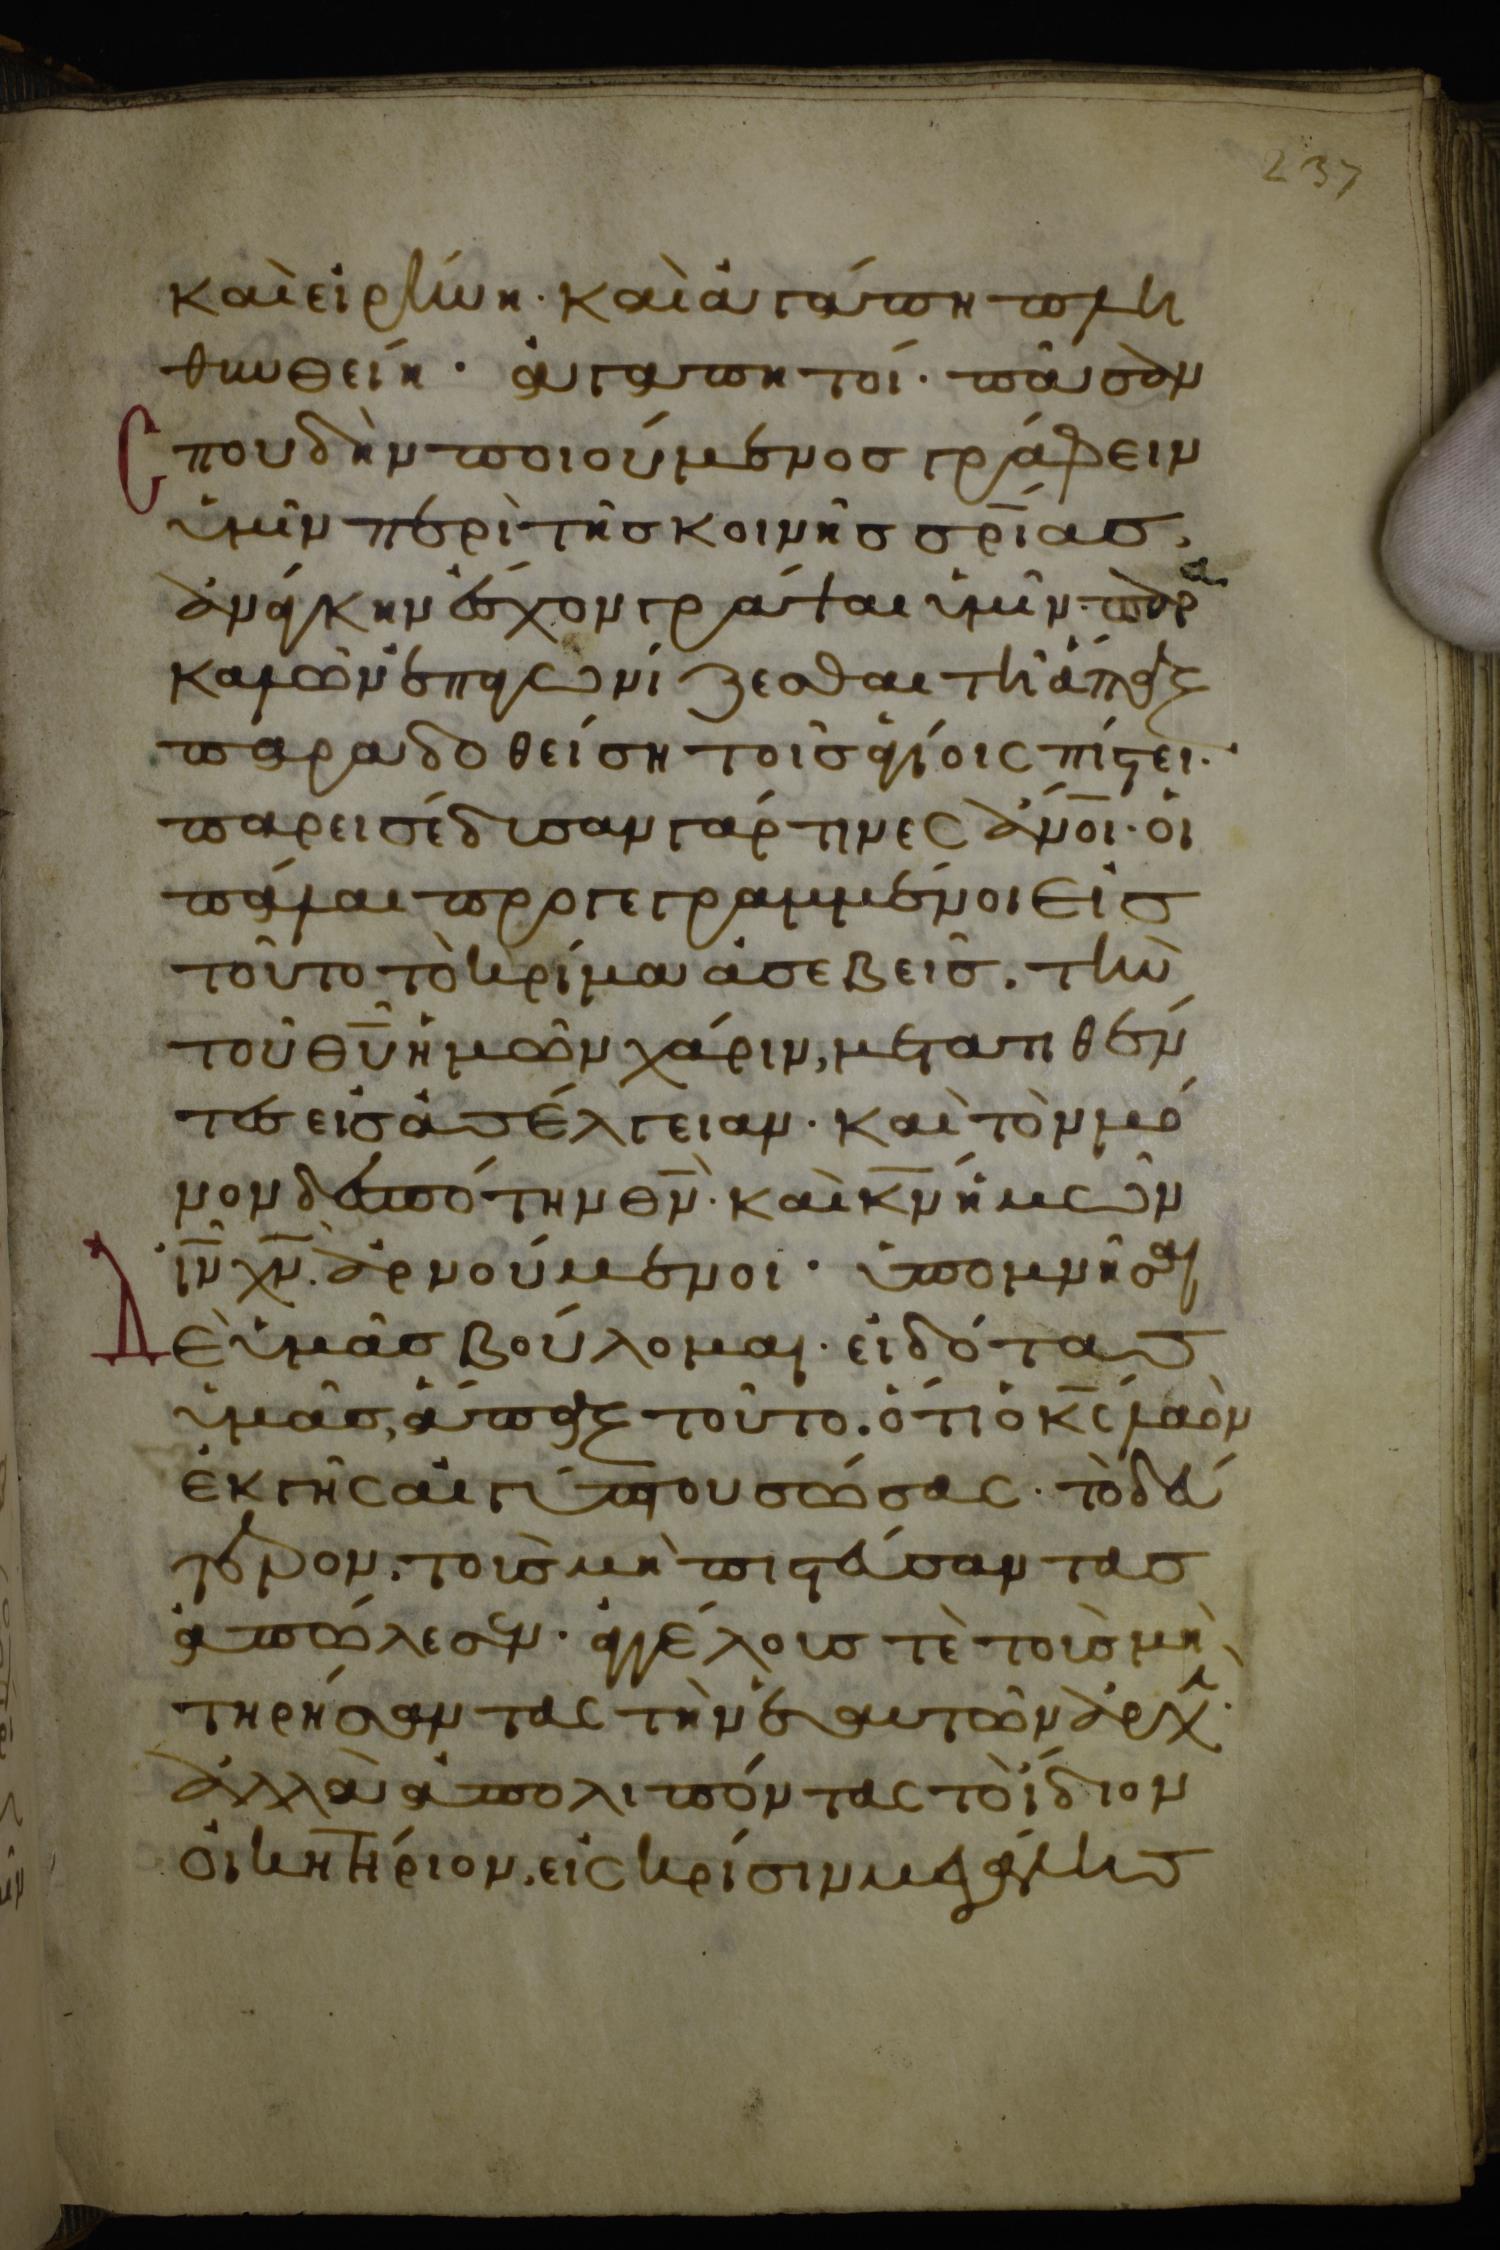 237
καὶ εἰρήνη· καὶ ἀγάπη πλη
θυνθείη· ἀγαπητοί· πᾶσαν
σπουδὴν ποιούμενος γράφειν
ὑμῖν περὶ τῆς κοινῆς σρ̅ίας,
ἀνάγκην ἔσχον γράψαι ὑμῖν· παρα
καλῶν ἐπαγωνίζεσθαι τῆ ἅπαξ
παραδοθείση τοῖς ἁγίοις πίστει·
παρεισέδυσαν γάρ τινες ἄν̅οι· οἱ
πάλαι προγεγραμμένοι εἰς
τοῦτο τὸ κρίμα ἀσεβεῖς. τὴν
τοῦ θ̅υ̅ ἡμῶν χάριν, μετατιθέν
τες εἰς ἀσέλγειαν· καὶ τὸν μό
νον δεσπότην θ̅ν̅· καὶ κ̅ν̅ ἡμῶν
ι̅ν̅ χ̅ν̅. ἀρνούμενοι· ὑπομνῆσαι
δὲ ὑμᾶς βούλομαι· εἰδότας
ὑμᾶς, ἅπαξ τοῦτο. ὅτι ὁ κ̅ς̅ λαὸν
ἐκ γῆς αἰγύπτου σώσας· τὸ δεύ
τερον. τοὺς μὴ πιστεύσαντας
ἀπώλεσεν· ἀγγέλους τὲ τοὺς μὴ
τηρήσαντας τὴν ἑαυτῶν ἀρχὴν·
ἀλλὰ ἀπολιπόντας τὸ ἴδιον
οἰκητήριον. εἰς κρίσιν μεγάλης